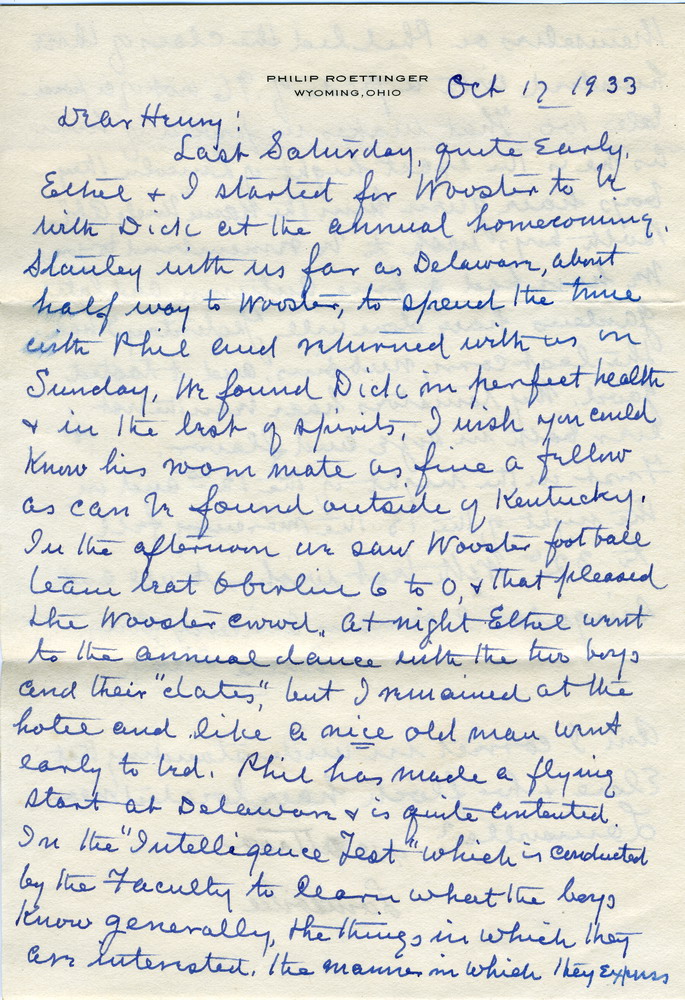 PHILIP ROETTINGER
WYOMING, OHIO
Oct 17 1933
Dear Henry:
Last Saturday, quite early,
Ethel & I started for Wooster to be
with Dick at the annual homecoming.
Stanley with us far as Delaware, about
half way to Wooster, to spend the time
with Phil and returned with us on
Sunday. We found Dick in perfect health
& in the best of spirits. I wish you could
know his room mate as fine a fellow
as can be found outside of Kentucky.
In the afternoon we saw Wooster football
team beat Oberlin 6 to 0, & that pleased
the Wooster crowd. At night Ethel went
to the annual dance with the two boys
and their "dates", but I remained at the
hotel and like a nice old man went
early to bed. Phil has made a flying
start at Delaware & is quite contented.
In the "Intelligence Test" which is conducted
by the Faculty to learn what the boys
know generally, the things in which they
are interested, the manner in which they express